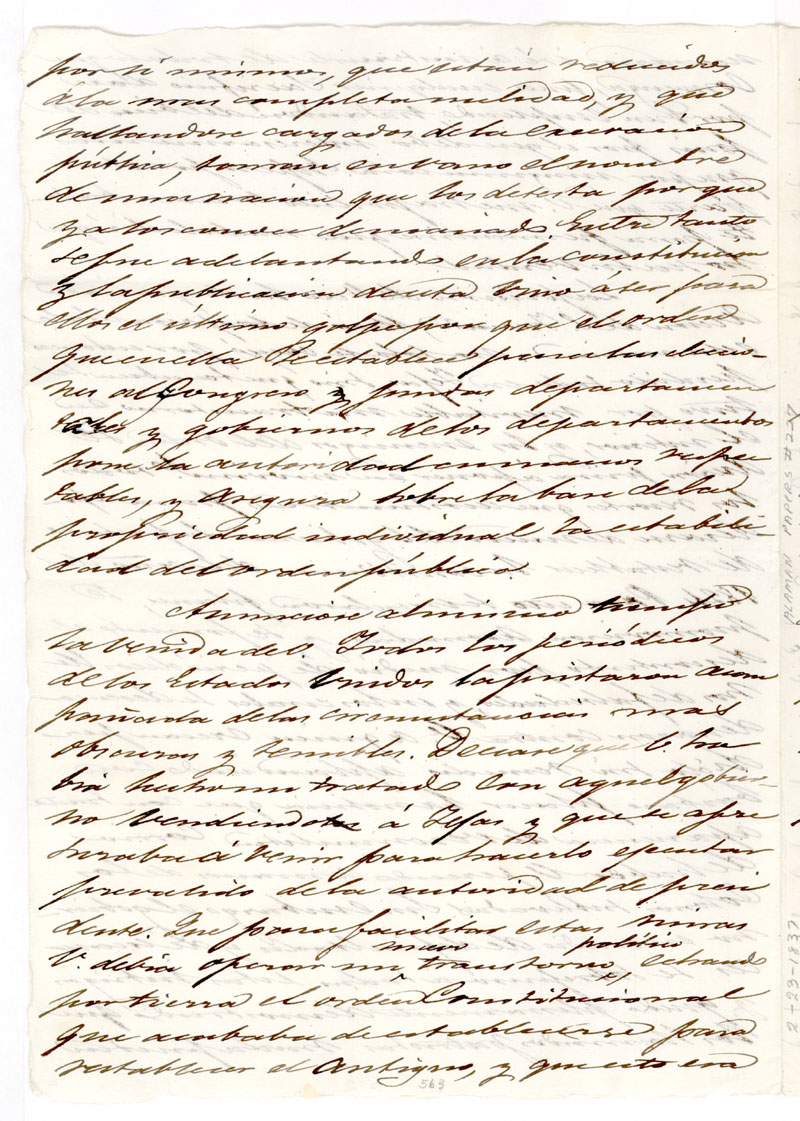 por sí mismos, que están reducidos
á la mas completa nulidad, y que
hallandose cargados de la execración
pública, toman en vano el nombre
de una nacion que los detesta porque
ya los conoce demasiado. Entre tanto
se fue adelantando en la constitución
y la publicacion de esta vino á ser para
ellos el último golpe por que el orden
que en ella se establece para las eleccio-
nes al Congreso y juntas departamen
tales y gobiernos de los departamentos
pone la autoridad en manos respe
tables, y asegura sobre la base de la
propiedad individual la estabili-
dad del orden público.
Anunciose al mismo tiempo
la venida de V. Todos los periódicos
de los Estados Unidos la pintaron acom
pañada de las circunstancias mas
obscuras y temibles. Deciase que V. ha
bia hecho un tratado con aquel gobier-
no vendiendole á Tejas y que se apre
suraba á venir para hacerlo ejecutar
prevalido de la autoridad de presi
dente. Que para facilitar estas miras
nuevo político
V. debia operar un trastorno, echando
por tierra el orden Constitucional
que acababa de establecerse para
restablecer el antiguo, y que esto era
563
ALAMAN PAPERS #227
2-23-1837